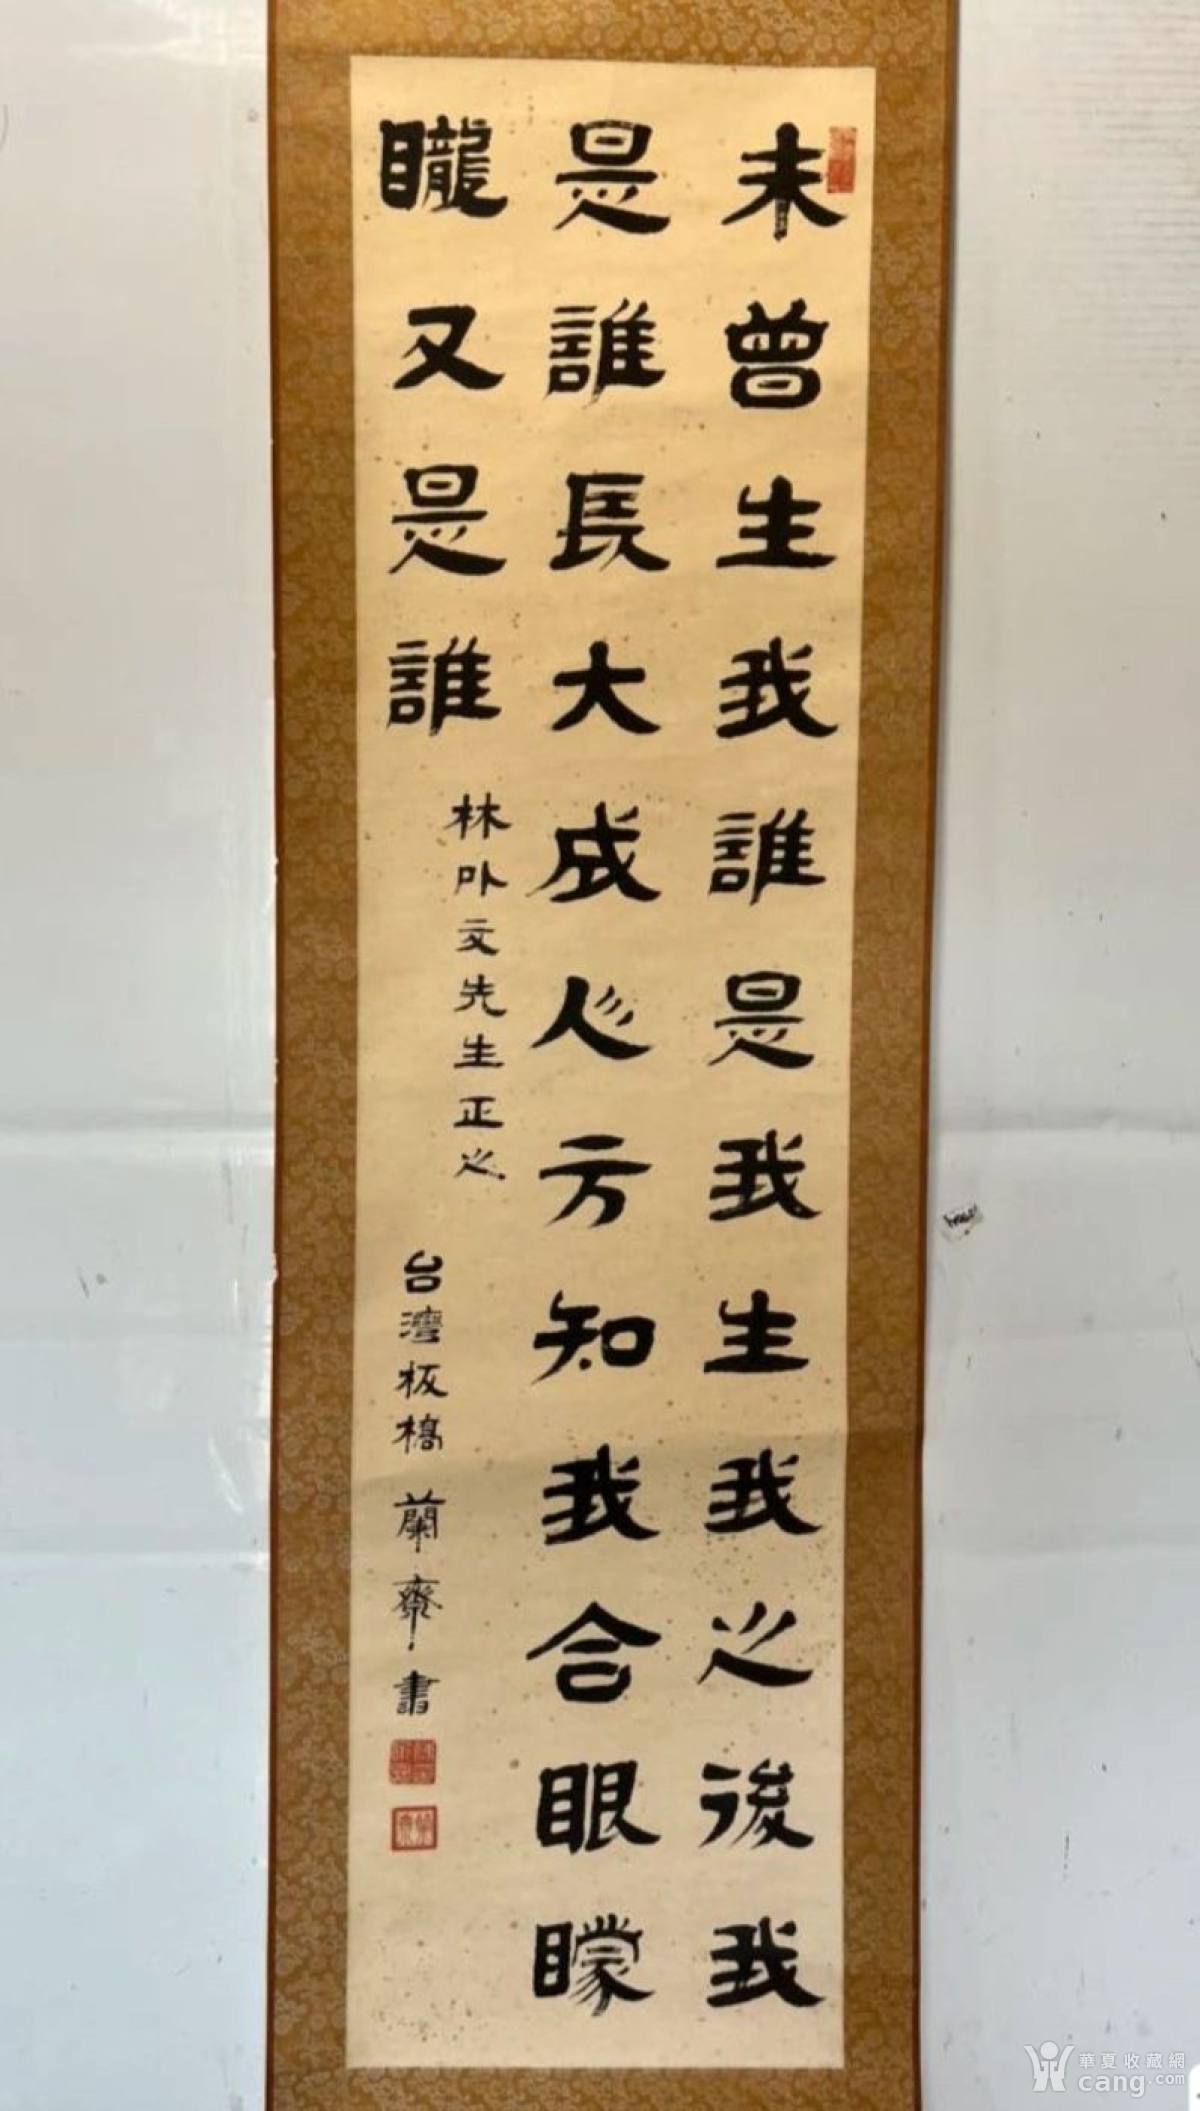 未曾生我誰是我生我之後我
是誰長大成人方知我合眼矇
矓又是誰
林卟文先生正之
台灣板橋 蘭齋書
華夏收藏網
cang.com